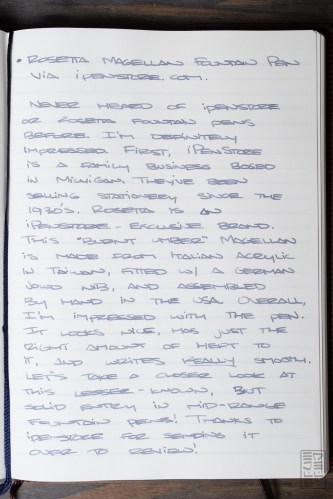 • Rosetta Magellan Fountain Pen
via iPenstore.com.
Never heard of iPenstore
or Rosetta fountain pens
before. I'm definitely
impressed. First, iPenStore
is a family business based
in Michigan. They've been
selling stationery since the
1930's. Rosetta is an
iPenstore-exclusive brand.
This "Burnt Umber" Magellan
is made from Italian acrylic
in Taiwan, fitted w/ a German
Jowo nib, and assembled
by hand in the USA. Overall,
I'm impressed with the pen.
It looks nice, has just the
right amount of heft to
it, and writes really smooth.
Let's take a closer look at
this lesser-known, but
solid entry in mid-range
fountain pens! Thanks to
iPenstore for sending it
over to review!